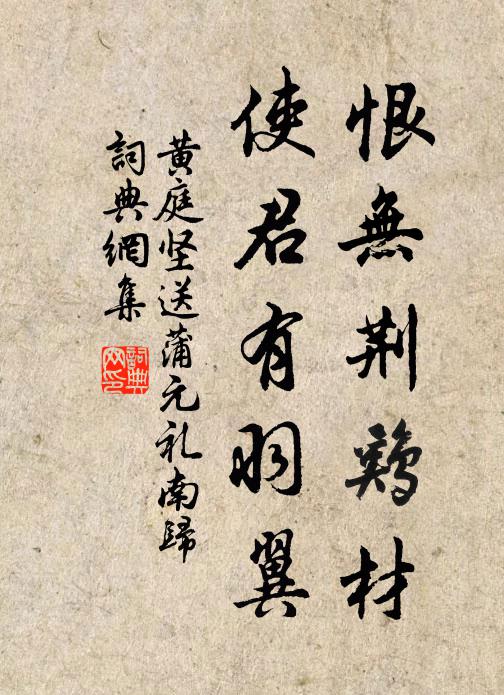 恨無荆鷄材
使君有羽翼
黄庭坚送蒲元礼南歸
詞典網集
詞典网印